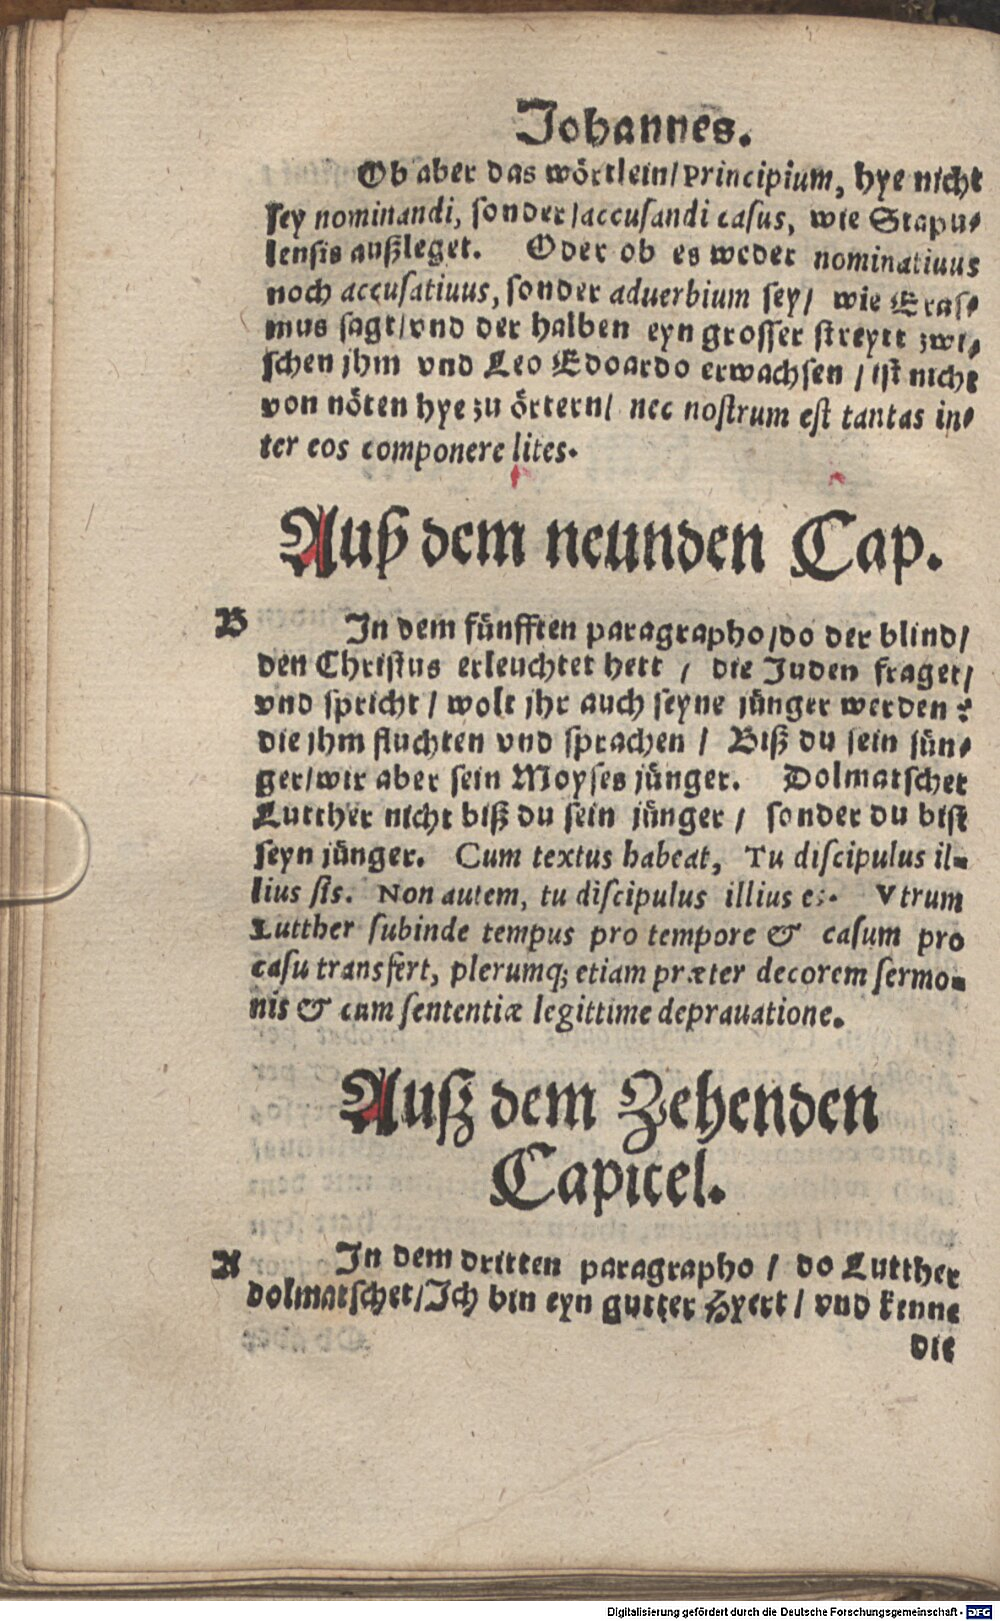 Johannes.
Ob aber das wörtlein/principium, hye nicht
sey nominandi, sonder/accusandi casus, wie Stapu⸗
lensis außleget. Oder ob es weder nominatiuus
noch accusatiuus, sonder aduerbium sey/ wie Eras⸗
mus sagt/vnd der halben eyn grosser streytt zwi⸗
schen jhm vnd Leo Edoardo erwachsen / ist nicht
von nöten hye zu örtern/ nec nostrum est tantas in⸗
ter eos componere lites.
Auß dem neunden Cap.
B In dem fünfften paragrapho/do der blind/
den Christus erleuchtet hett / die Juden fraget/
vnd spricht / wolt jhr auch seyne jünger werden?
die jhm fluchten vnd sprachen / Biß du sein jün⸗
ger/wir aber sein Moyses jünger. Dolmatschet
Lutther nicht biß du sein jünger / sonder du bist
seyn jünger. Cum textus habeat, Tu discipulus il⸗
lius sis. Non autem, tu discipulus illius es. Vtrum
Lutther subinde tempus pro tempore & casum pro
casu transfert, plerumq; etiam præter decorem sermo⸗
nis & cum sententiæ legittime deprauatione.
Auß dem Zehenden
Capitel.
A In dem dritten paragrapho / do Lutther
dolmatschet/Ich bin eyn gutter Hyert / vnd kenne
die
Digitalisierung gefördert durch die Deutsche Forschungsgemeinschaft - DFG